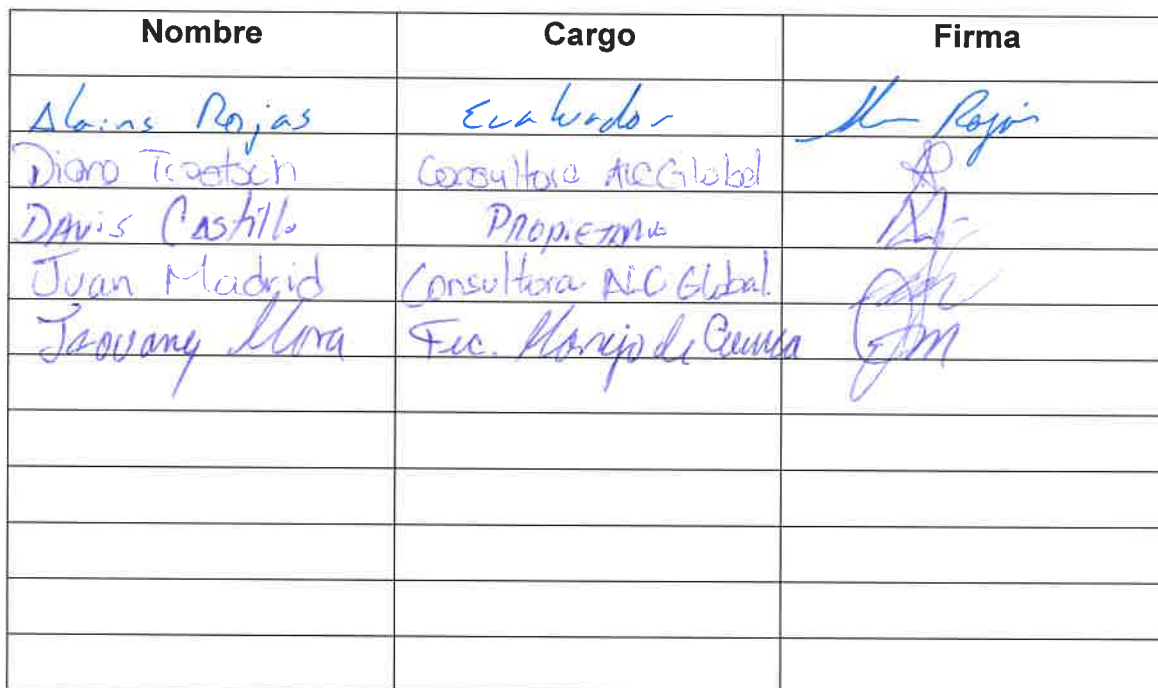 Nombre Cargo Firma
Alains Rojas Evaluador Rojas
Diana Tcoetsch Consultora ALC Global
DAvis CAstillo PROPIETARIO
Juan Madrid Consultora ALC Global
Mora Tec. Manejo de Cuenca